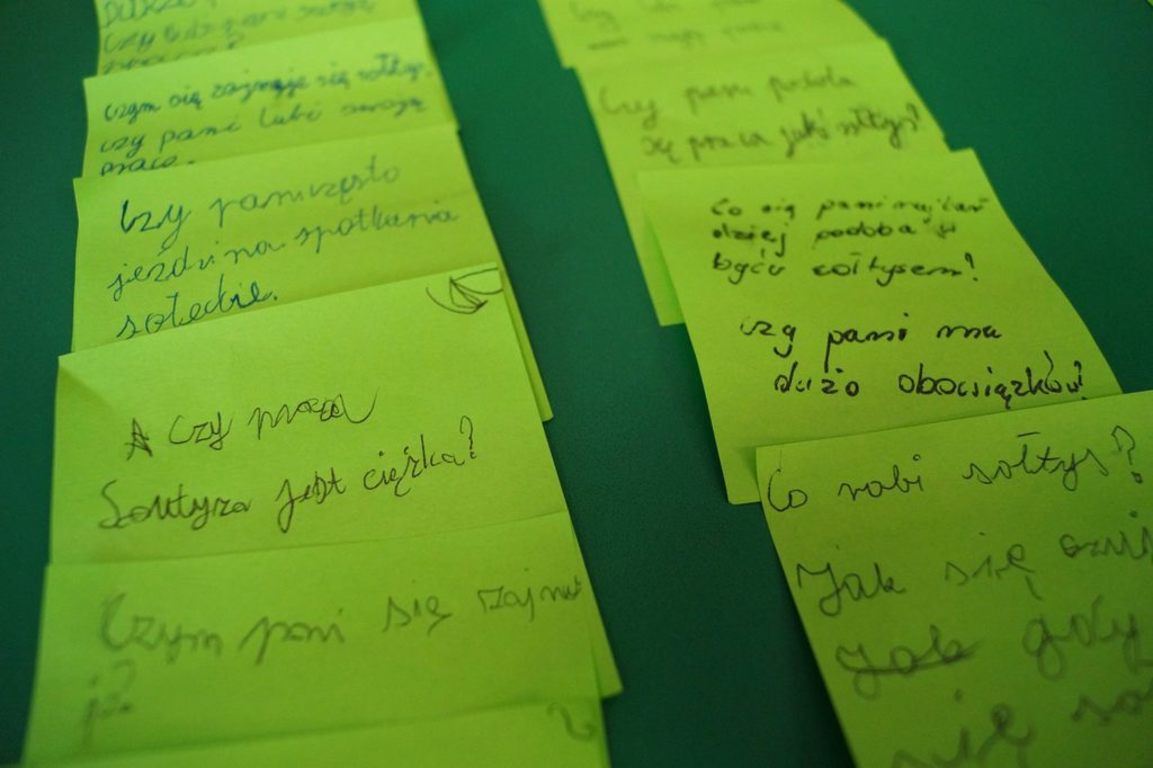 Czy
czym się zajmuje się sołtys.
czy pani lubi swoją
pracę.
Czy pani często
jeździ na spotkania
sołeckie.
A Czy praca
Sołtysa jest ciężka?
Czym pani się zajmu
je?
Czy pani podoba
się praca jako sołtys?
Co się pani najbar
dziej podoba w
byciu sołtysem?
czy pani ma
dużo obowiązków?
Co robi sołtys?
Jak się
gdy
się